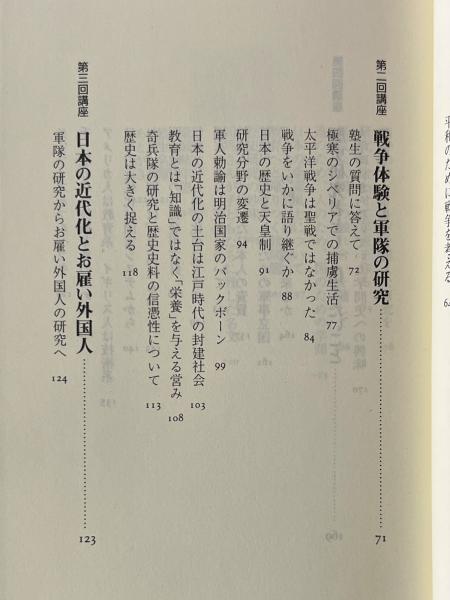 平和のために戦争を考える 64
第二回講座
戦争体験と軍隊の研究 71
塾生の質問に答えて 72
極寒のシベリアでの捕虜生活 77
太平洋戦争は聖戦ではなかった 84
戦争をいかに語り継ぐか 88
日本の歴史と天皇制 91
研究分野の変遷 94
軍人勅諭は明治国家のバックボーン 99
日本の近代化の土台は江戸時代の封建社会 103
教育とは「知識」ではなく「栄養」を与える営み 108
奇兵隊の研究と歴史史料の信憑性について 113
歴史は大きく捉える 118
第三回講座
日本の近代化とお雇い外国人 123
軍隊の研究からお雇い外国人の研究へ 124